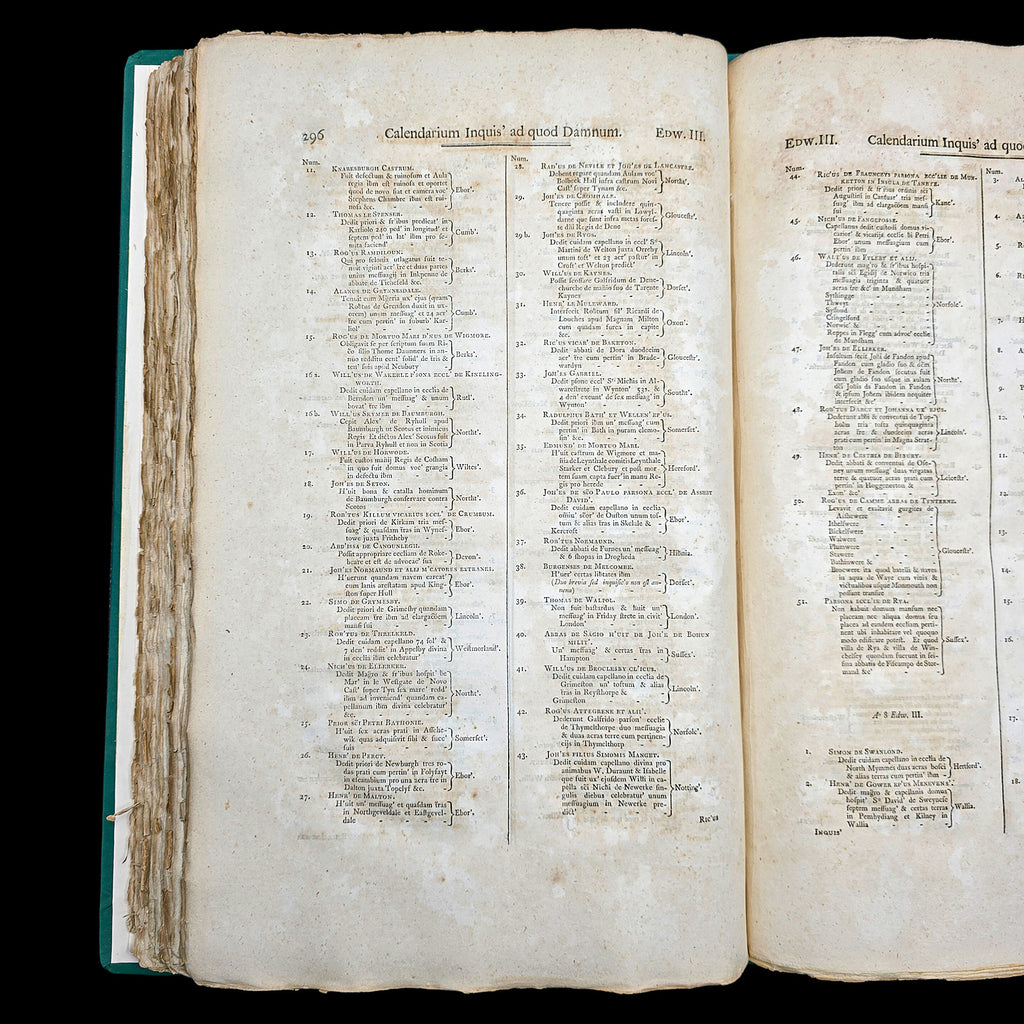 296
Calendarium Inquis' ad quod Damnum.
EDW. III.
Num.
11. KNARESBURGH CASTRUM.
Fuit defectum & ruinosum et Aula
regis ibm est ruinosa et oportet
quod de novo fiat et camera voc'
Stephens Chambre ibus est rui-
nosa &c.
Ebor'.
12. THOMAS LE SPENSER.
Dedit priori & fr'ibus predicat' in
Karliolo 240 ped' in longitud' et
septem ped' in lat' ibm pro se-
mita faciend'
Cumb'.
13. ROG'US RAMDILOUN.
Qui pro felonia utlagatus fuit te-
nuit viginti acr' tre et duas partes
unius messuagij in Inkpenne de
abbate de Tichefeld &c.
Berks'.
14. ALANUS DE GRYNNESDALE.
Tenuit cum Mageria ux' ejus (quam
Rob'tus de Grendon duxit in ux-
orem) unum messuag' et 24 acr'
tre cum pertin' in suburb' Kar-
liol'
Cumb'.
15. ROG'US DE MORTUO MARI D'NUS DE WIGMORE.
Obligavit se per scriptum suum Ri-
c'o filio Thome Daunners in an-
nuo redditu cent' solid' de tris &
ten' suis apud Neubury
Berks'.
16 a. WILL'US DE WAKERLE P'SONA ECCL' DE KINELING-
WORTH.
Dedit cuidam capellano in ecclia de
Berndon un' messuag' & unum
bovat' tre ibm
Rutl'.
16 b. WILL'US SEYMER DE BAUMBURGH.
Cepit Alex' de Ryhull apud
Baumburgh ut Scotus et inimicus
Regis Et dictus Alex' Scotus fuit
in Parva Ryhull et non in Scotia
Northt'.
17. WILL'US DE HORWODE.
Fuit custos manij Regis de Cosham
in quo fuit domus voc' grangia
in defectu ibm
Wiltes'.
18. JOH'ES DE SETON.
H'uit bona & catalla hominum
de Baumburgh conservat' contra
Scotos
Northt'.
19. ROB'TUS KILLUM VICARIUS ECCL' DE CRUMBUM.
Dedit priori de Kirkam tria mes-
suag' & quasdam tras in Wynes-
towe juxta Fritheby
Ebor'.
20. ABB'ISSA DE CANOUNLEGH.
Possit appropriare eccliam de Roke-
beare et est de advocac' sua
Devon'.
21. JOH'ES NORMAUND ET ALIJ M'CATORES EXTRANEI.
H'uerunt quandam navem carcat'
cum lanis arestatam apud King-
ston super Hull
Ebor'.
22. SIMO DE GRYMESBY.
Dedit priori de Grimesby quandam
placeam tre ibm ad elargacoem
mansi sui
Lincoln'.
23. ROB'TUS DE THRELKELD.
Dedit cuidam capellano 74 sol' &
7 den' reddit' in Appelby divina
in ecclia ibm celebratur'
Westmerland'.
24. NICH'US DE ELLERKER.
Dedit Magro & fr'ibus hospit' be
Mar' in le Westgate de Novo
Cast' super Tyn sex marc' redd'
ibm ad inveniend' quandam ca-
pellanum ibm divina celebratur'
&c.
Northt'.
25. PRIOR SCI PETRI BATHONIE.
H'uit sex acras prati in Assche-
wik quas adquisivit sibi & succ'
suis
Somerset'.
26. HENR' DE PERCY.
Dedit priori de Newburgh tres ro-
das prati cum pertin' in Folysayt
in excambium pro una acra tre in
Dalton juxta Topclyf &c.
Ebor'.
27. HENR' DE MALTON.
H'uit un' messuag' et quasdam tras
in Northgeveldale et Eastgevel-
dale
Ebor'.
Num.
28. RAD'US DE NEVILE ET JOH'ES DE LANCASTRE.
Debent repare quandam Aulam voc'
Bolbeck Hall infra castrum Novi
Cast' super Tynam &c.
Northt'.
29. JOH'ES DE CROMHALE.
Tenere possit & includere quin-
quaginta acras vasti in Lowyl-
darne que sunt infra metas fores-
te dni Regis de Dene
Gloucestr'.
29 b. JOH'ES DE RYGS.
Dedit cuidam capellano in eccl' S
Martini de Welton juxta Orreby
unum toft' et 23 acr' pastur' in
Croft' et Welton predict'
Lincoln'.
30. WILL'US DE KAYNES.
Possit feoffare Galfridum de Dene-
churche de manio suo de Tarente
Kaynes
Dorset'.
31. HENR' LE MULEWARD.
Interfecit Rob'tum fil' Ricardi de
Louches apud Magnam Milton
cum quadam furca in capite
&c.
Oxon'.
32. RIC'US VICAR' DE BAKETON.
Dedit abbati de Dora duodecim
acr' tre cum pertin' in Brade-
wardyn
Gloucestr'.
33. JOH'ES GABRIEL.
Dedit psone eccl' S Michis in Al-
warestrete in Wynton' 53s. &
4 den' exeunt' de sex messuag' in
Wynton'
Southt'.
34. RADULPHUS BATH' ET WELLEN' EP'US.
Dedit priori ibm un' messuag' cum
pertin' in Bath in puram elemo-
sin' &c.
Somerset'.
35. EDMUND' DE MORTUO MARI.
H'uit castrum de Wigmore et ma-
nia de Leynthale comitis Leynthale
Starker et Clebury et post mor-
tem suam capta fuer' in manu Re-
gis pro herede
Hereford'.
36. JOH'ES DE SCO PAULO PARSONA ECCL' DE ASSEBT
DAVID'.
Dedit cuidam capellano in ecclia
omniu' scor' de Ouston unum tof-
tum & alias tras in Skelale &
Kercroft
Ebor'.
37. ROB'TUS NORMAUND.
Dedit abbati de Furnes un' messuag'
& 6 shopas in Drogheda
Hibnia.
38. BURGENSES DE MELCOMBE.
H'uer' certas libtates ibm
(Duo brevia sed inquisic'o non est an-
nexa)
Dorset'.
39. THOMAS DE WALPOL.
Non fuit bastardus & huit un'
messuag' in Friday strete in civit'
London'
London'.
40. ABBAS DE SAGIO H'UIT DE JOH'E DE BOHUN
MILIT'.
Un' messuag' & certas tras in
Hampton
Sussex'.
41. WILL'US DE BROCLESBY CL'ICUS.
Dedit cuidam capellano in ecclia de
Grimeston un' toftum & alias
tras in Reysthorpe &
Grimeston
Lincoln'.
42. ROG'US ATTEGRENE ET ALII'.
Dederunt Galfrido parson' ecclie
de Thymelthorpe duo messuagia
& duas acras terre cum pertinen-
cijs in Thymelthorp
Norfolc'.
43. JOH'ES FILIUS SIMONIS MANGET.
Dedit cuidam capellano divina pro
animabus W. Duraunt & Isabelle
que fuit ux' ejusdem Willi in ca-
pella sci Nichi de Newerke sin-
gulis diebus celebratur' unum
messuagium in Newerke pre-
dict'
Notting'.
RIC'US
EDW. III.
Calendarium Inquis' ad quo
Num.
44. RIC'US DE FRAUNCEYS PARSONA ECC'LIE DE MUN-
KETTON IN INSULA DE TANETE.
Dedit priori & fr'ibus ordinis sci
Augustini in Cantuar' tria mes-
suag' ibm ad elargacoem mansi
sui
Kanc'.
45. NICH'US DE FANGEFOSSE.
Capellanus dedit custodi domus vi-
carior' & vicarijs ecclie bi Petri
Ebor' unum messuagium cum
pertin' ibm
Ebor'.
46. WALT'US DE FYLEBY ET ALIJ.
Dederunt mag'ro & fr'ibus hospi-
talis sci Egidij de Norwico tria
messuagia triginta & quatuor
acras tre &c' in Mundham
Sythingge
Thweyt
Sydond
Cringelford
Norwic' &
Reppes in Flegg' cum advoc' ecclie
de Mundham
Norfolc'.
47. JOH'ES DE ELLERKER.
Insultum fecit Johi de Fandon apud
Fandon cum gladio suo & dcm
Johem de Fandon secutus fuit
cum gladio suo usque in aulam
dci Johis de Fandon in Fandon
& ipsum Johem ibidem nequiter
interfecit &c'
Northt'.
48. ROB'TUS DARCY ET JOHANNA UX' EJUS.
Dederunt abbi & conventui de Tup-
holm tria tofta quinquaginta
acras tre & duodecim acras
prati cum pertin' in Magna Stur-
ton
Lincoln'.
49. HENR' DE CESTRIA DE BIBURY.
Dedit abbati & conventui de Ose-
ney unum messuag' duas virgatas
terre & quatuor acras prati cum
pertin' in Hoggenorton &
Exem' &c'
Leicestr'.
50. ROG'US DE CAMME ABBAS DE TYNTERNE.
Levavit et exaltavit gurgites de
Ashewere
Ithelswere
Bickelswere
Walwere
Plumwere
Stawere
Bathinwere &
Brocwere ita quod batelli & naves
in aqua de Waye cum vinis &
victualibus usque Monmouth non
possunt transire
Gloucestr'.
51. PARSONA ECCL'IE DE RYA.
Non habuit domum mansum nec
placeam nec aliqua domus seu
placea ad eandem eccliam pertin-
nent ubi inhabitare vel quoquo
modo edificare potest. Et quod
villa de Rya & villa de Win-
chelsey quondam fuerunt in sei-
sina abbatis de Fiscampo de Stor-
mand &c'
Sussex'.
A° 8 Edw. III.
1. SIMON DE SWANLOND.
Dedit cuidam capellano in ecclia de
North Mymmes duas acras bosci
& alias terras cum pertin' ibm
Hertford'.
2. HENR' DE GOWER EP'US MENEVEN'.
Dedit magro & capellanis domus
hospit' S David' de Sweynese
septem messuag' & certas terras
in Pembydiang et Kilney in
Wallia
Wallia.
INQUIS'
Num.
3.
4.
5.
6.
7.
8.
9.
10.
11.
12.
13.
14.
15.
16.
17.
18.